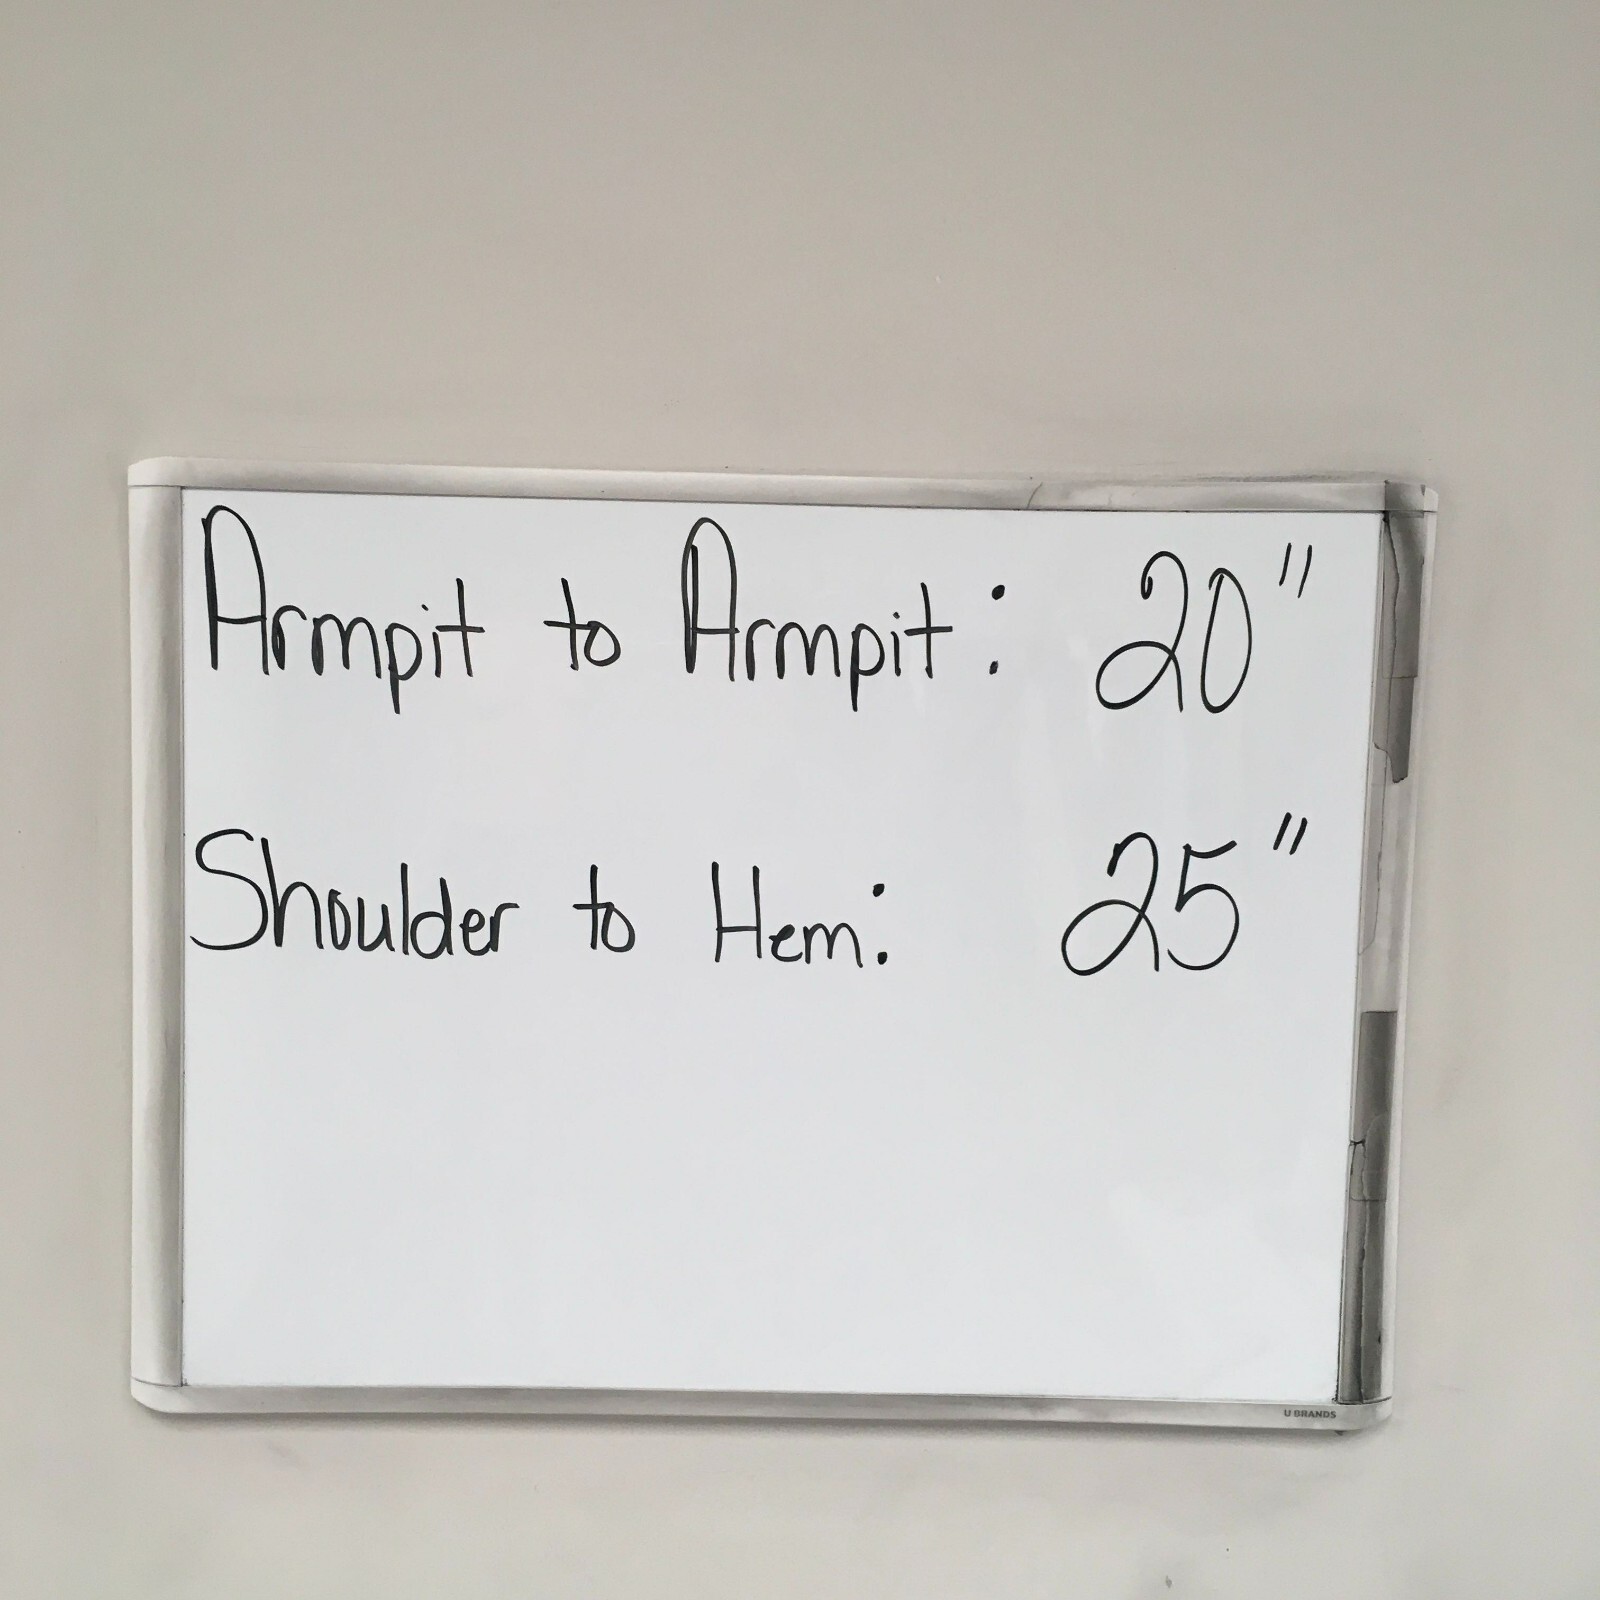 Armpit to Armpit: 20"
Shoulder to Hem: 25"
U BRANDS